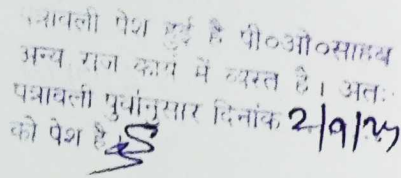 पत्रावली पेश हुई है पी०ओ०साहब
अन्य राज कार्य में व्यस्त है। अतः
पत्रावली पुर्वानुसार दिनांक 2/9/25
को पेश है